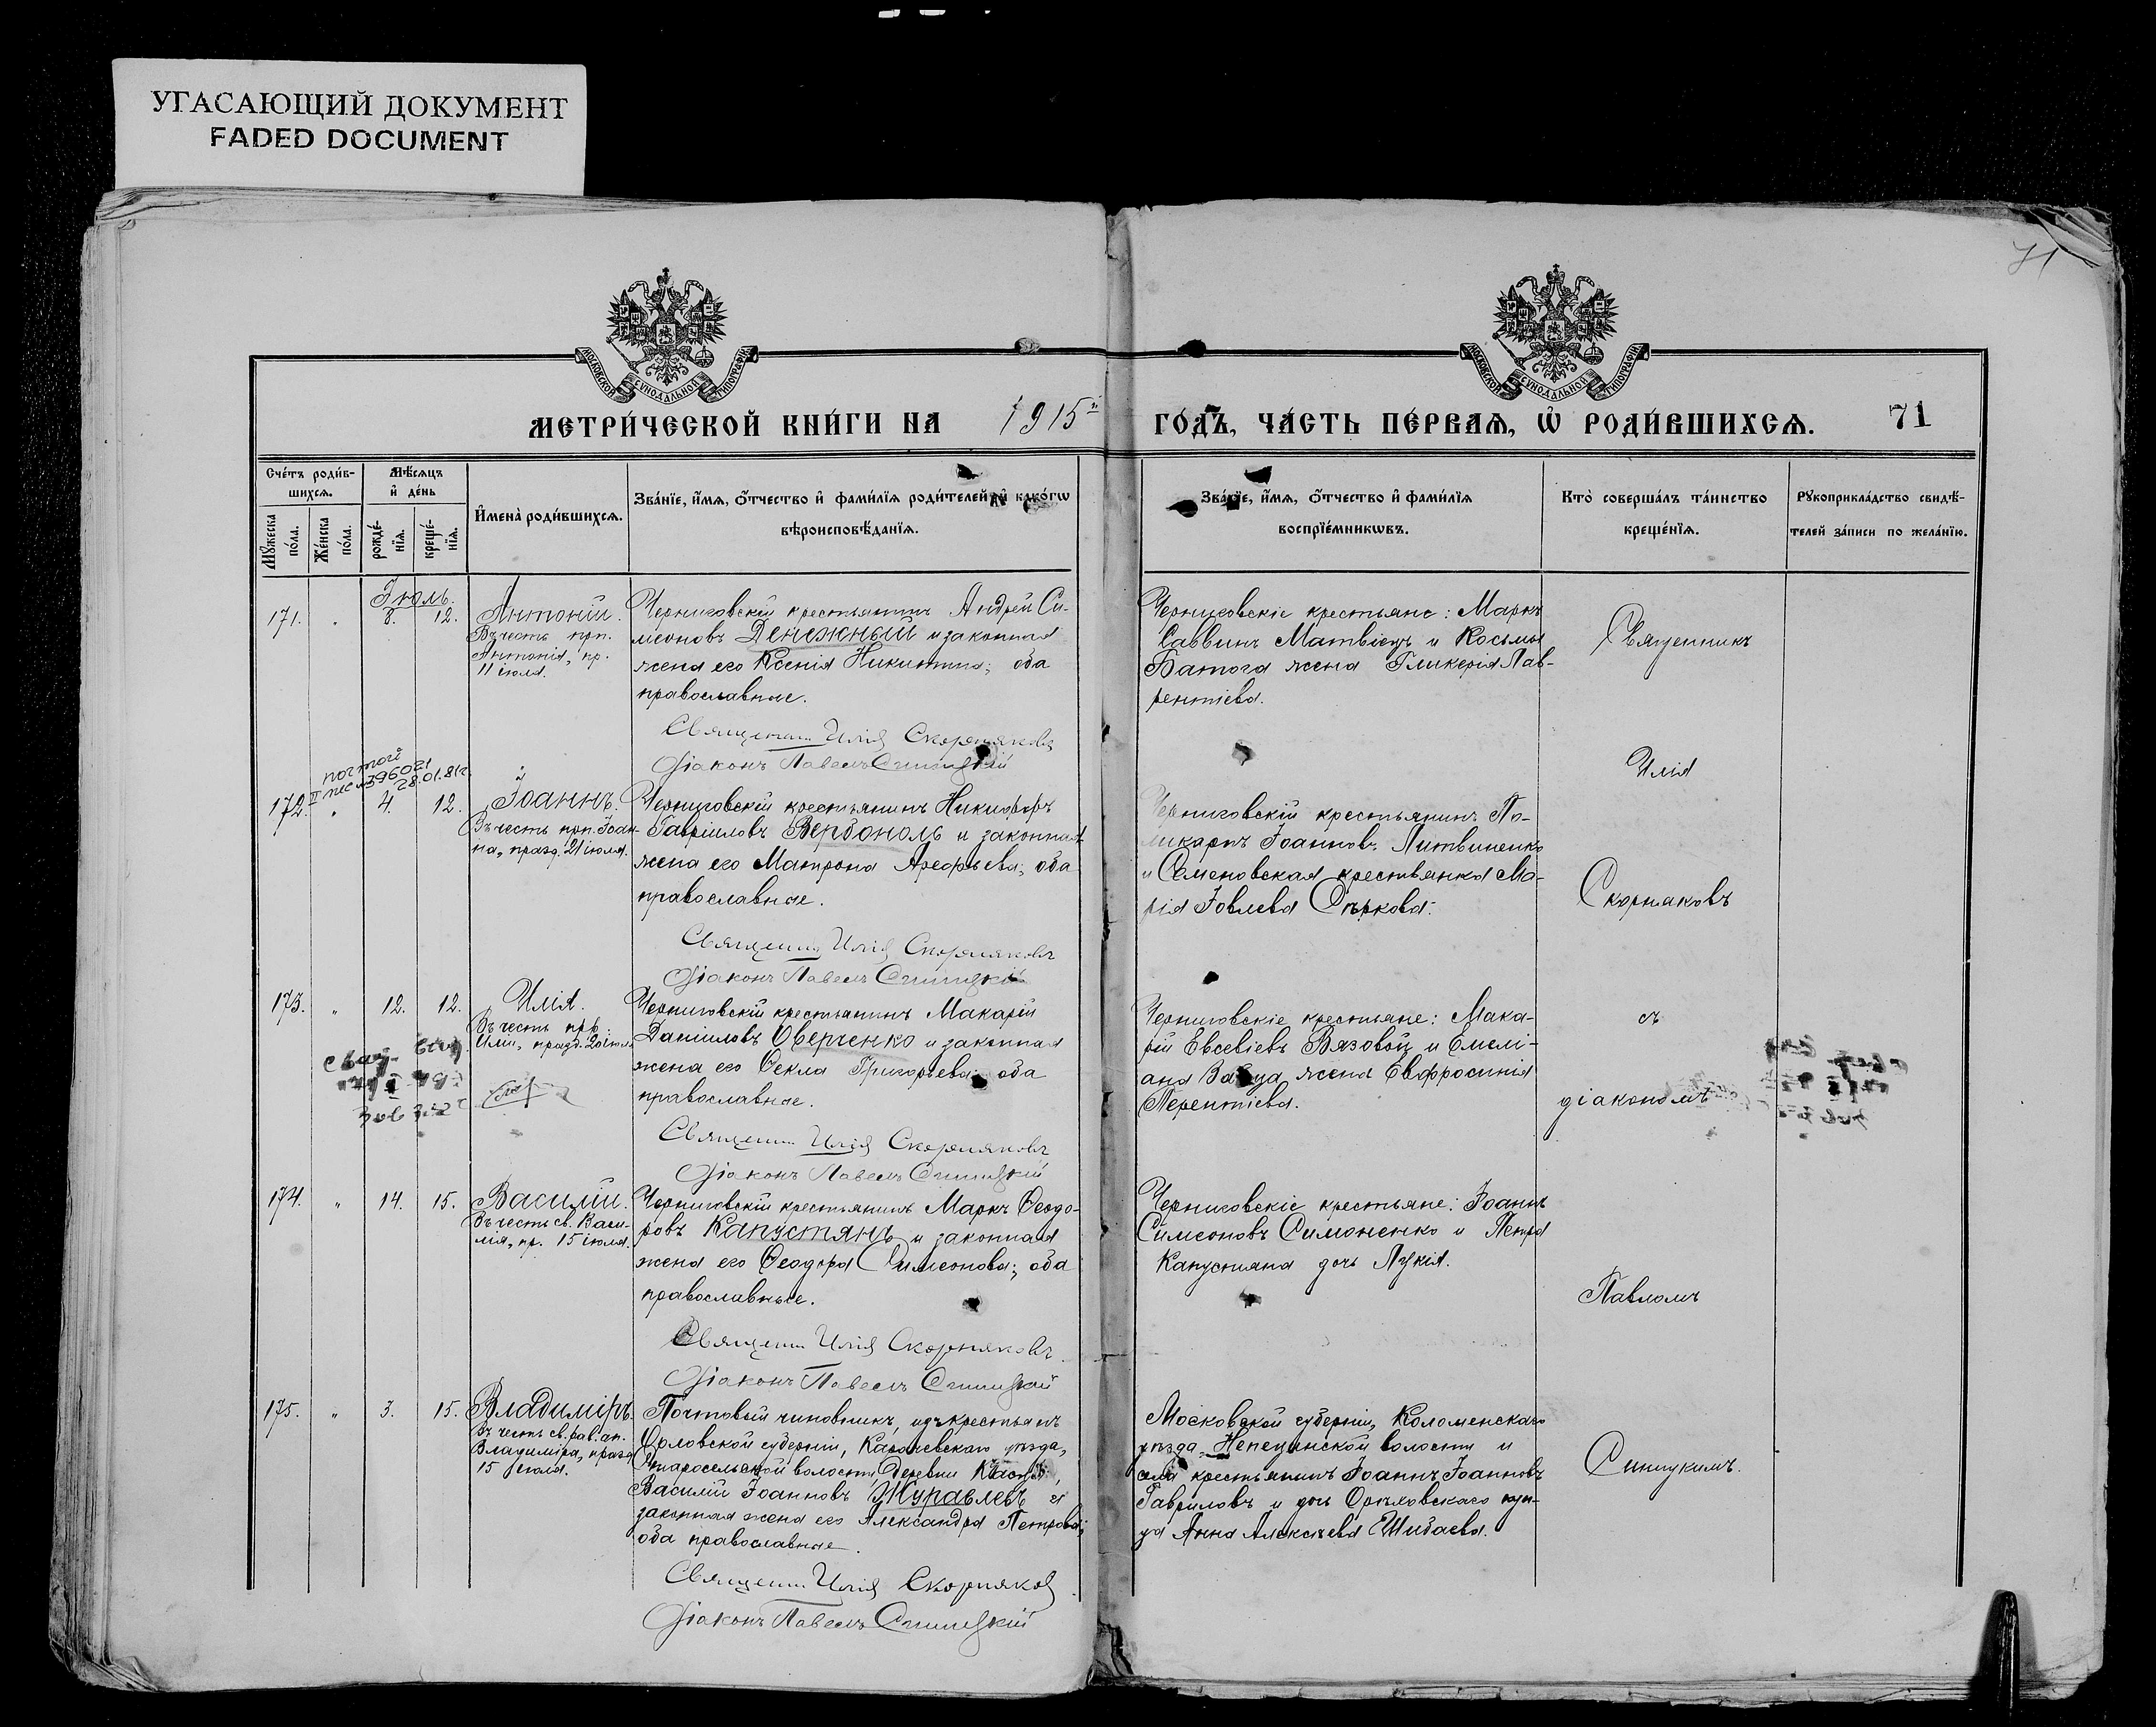 УГАСАЮЩИЙ ДОКУМЕНТ
FADED DOCUMENT
71
МОСКОВСКОЙ СѴНОДАЛЬНОЙ ТИПОГРАФІИ
МОСКОВСКОЙ СѴНОДАЛЬНОЙ ТИПОГРАФІИ
МЕТРИ́ЧЕСКОЙ КНИ́ГИ НА 1915й ГО́ДЪ, ЧА́СТЬ ПЕ́РВАѦ, Ѡ҆ РОДИ́ВШИХСѦ. 71
Сче́тъ роди́в-
шихсѧ.
Мꙋ́жеска по́ла.
Же́нска по́ла.
Мѣ́сѧцъ
и҆ де́нь
рожде́-
нїѧ.
креще́-
нїѧ.
И҆мена̀ роди́вшихсѧ.
Зва́нїе, и҆́мѧ, ѻ҆́тчество и҆ фами́лїѧ роди́телей, и҆ како́гѡ
вѣроисповѣ́данїѧ.
Зва́нїе, и҆́мѧ, ѻ҆́тчество и҆ фами́лїѧ
воспрїе́мникѡвъ.
Кто̀ соверша́лъ та́инство
креще́нїѧ.
Рꙋкоприкла́дство свидѣ́-
телей за́писи по жела́нїю.
Іюль.
171. " 8. 12. Антоній.
Въ честь прп.
Антонія, пр.
11 іюля.
Черниговскій крестьянинъ Андрей Си-
меоновъ Денежный и законная
жена его Ксенія Никитина; оба
православные.
Священн. Илія Скорняковъ
Діаконъ Павелъ Синицкій
Черниговскіе крестьяне: Маркъ
Саввинъ Матвіецъ и Косьмы
Батога жена Гликерія Лав-
рентіева.
Священникъ
Илія
Скорняковъ
съ
діакономъ
Павломъ
Синицкимъ.
396021
28.01.81г.
172. " 4. 12. Іоаннъ.
Въ честь прп. Іоан-
на, празд. 21 іюля.
Черниговскій крестьянинъ Никифоръ
Гавріиловъ Вербоноль и законная
жена его Матрона Арефьева; оба
православные.
Священн. Илія Скорняковъ
Діаконъ Павелъ Синицкій
Черниговскій крестьянинъ По-
ликарпъ Іоанновъ Литвиненко
и Семеновская крестьянка Ма-
рія Іовлева Сѣркова.
173. " 12. 12. Илія.
Въ честь прр.
Иліи, празд. 20 іюл.
Черниговскій крестьянинъ Макарій
Даніиловъ Оверченко и законная
жена его Ѳекла Григорьева; оба
православные.
Священн. Илія Скорняковъ
Діаконъ Павелъ Синицкій
Черниговскіе крестьяне: Мака-
рій Евсевіевъ Вязовой и Емелі-
ана жена Евфросинія
Терентіева.
174. " 14. 15. Василій.
Въ честь св. Васи-
лія, пр. 15 іюля.
Черниговскій крестьянинъ Маркъ Ѳеодо-
ровъ Капустянъ и законная
жена его Ѳеодора Симеонова; оба
православные.
Священн. Илія Скорняковъ
Діаконъ Павелъ Синицкій
Черниговскіе крестьяне: Іоаннъ
Симеоновъ Симоненко и Петра
Капустяна дочь Лукія.
175. " 3. 15. Владиміръ.
Въ честь св. рав. ап.
Владиміра, празд.
15 іюля.
Почтовый чиновникъ, изъ крестьянъ
Орловской губерніи, Карачевскаго уѣзда,
Старосельской волости, деревни
Василій Іоанновъ Журавлевъ и
законная жена его Александра Петрова;
оба православные.
Священн. Илія Скорняковъ
Діаконъ Павелъ Синицкій
Московской губерніи, Коломенскаго
уѣзда, Непецинской волости и
села крестьянинъ Іоаннъ Іоанновъ
Гавриловъ и дочь Орѣховскаго куп-
ца Анна Алексѣева Шибаева.